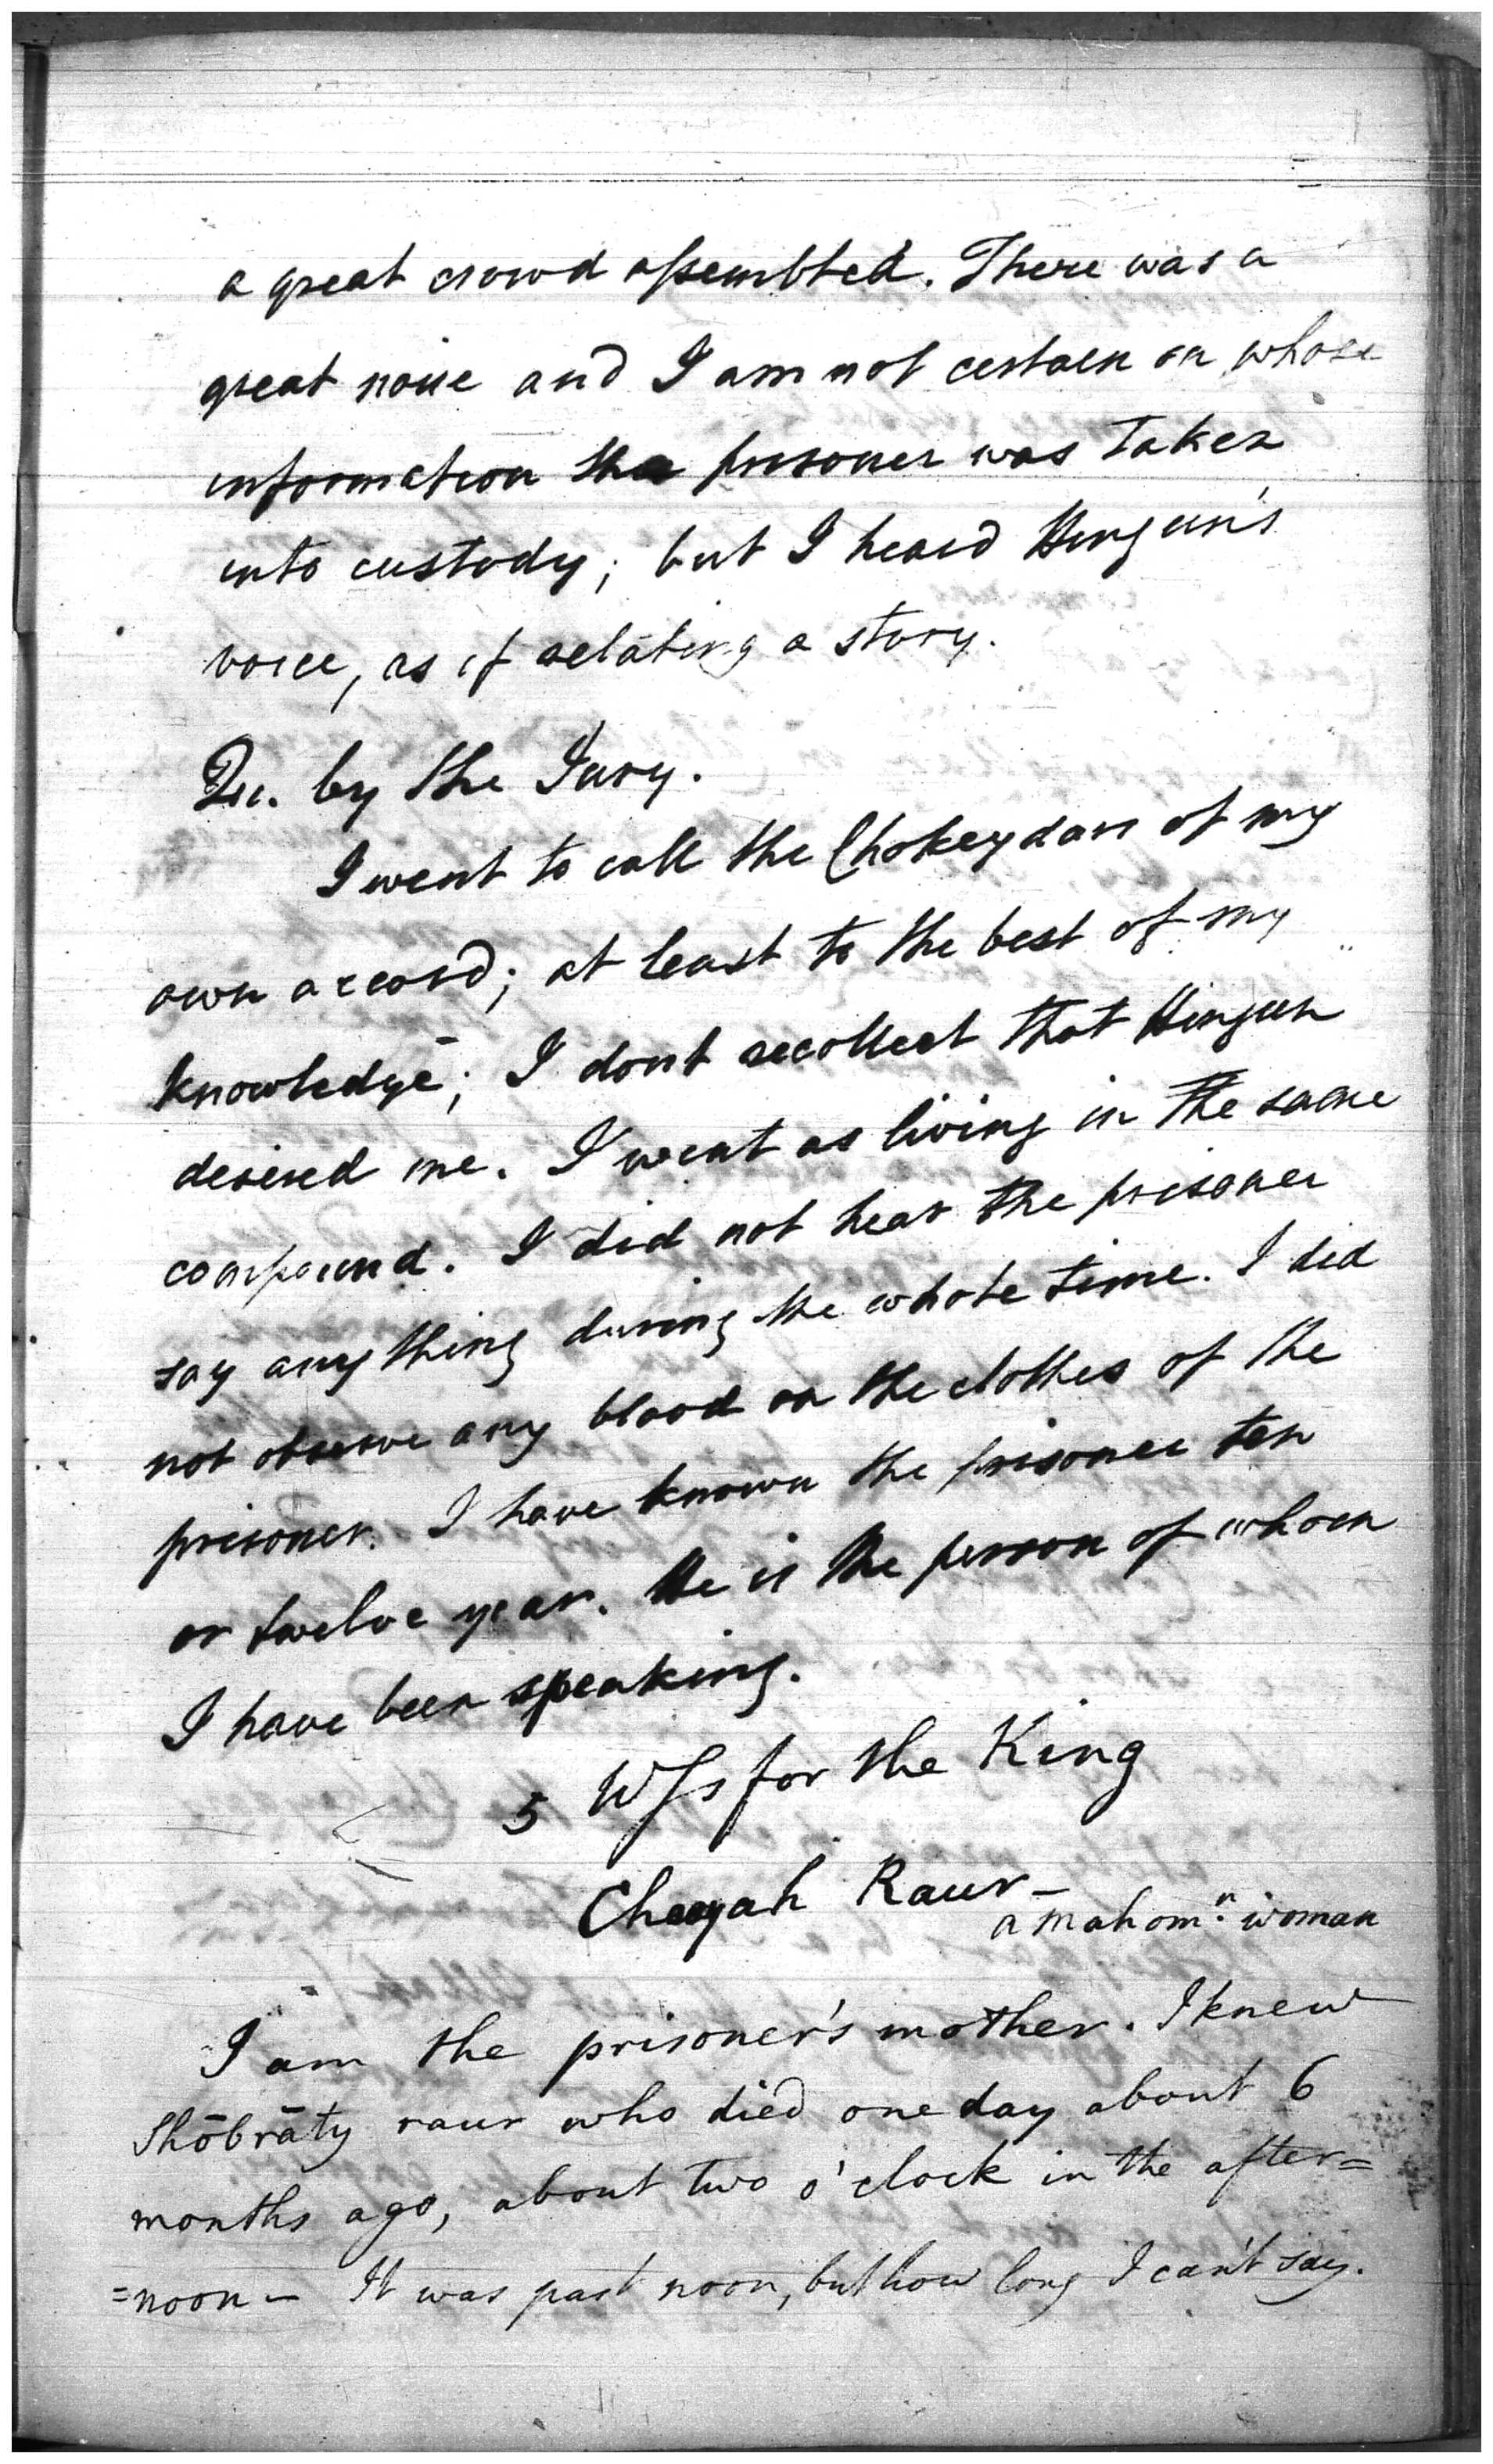 a great crowd assembled. There was a
great noise and I am not certain on whose
information the prisoner was taken
into custody; but I heard Hingun's
voice, as if relating a story.
Qu. by the Jury.
I went to call the Chokeydars of my
own accord; at least to the best of my
knowledge; I dont recollect that Hingun
desired me. I went as living in the same
compound. I did not hear the prisoner
say any thing during the whole time. I did
not observe any blood on the clothes of the
prisoner. I have known the prisoner ten
or twelve year. He is the person of whom
I have been speaking.
5 Wss for the King
Raur –
a mahomn. woman
I am the prisoner's mother. I knew
Shōbrāty raur who died one day about 6
months ago, about two o'clock in the after=
=noon – It was past noon, but how long I can't say.